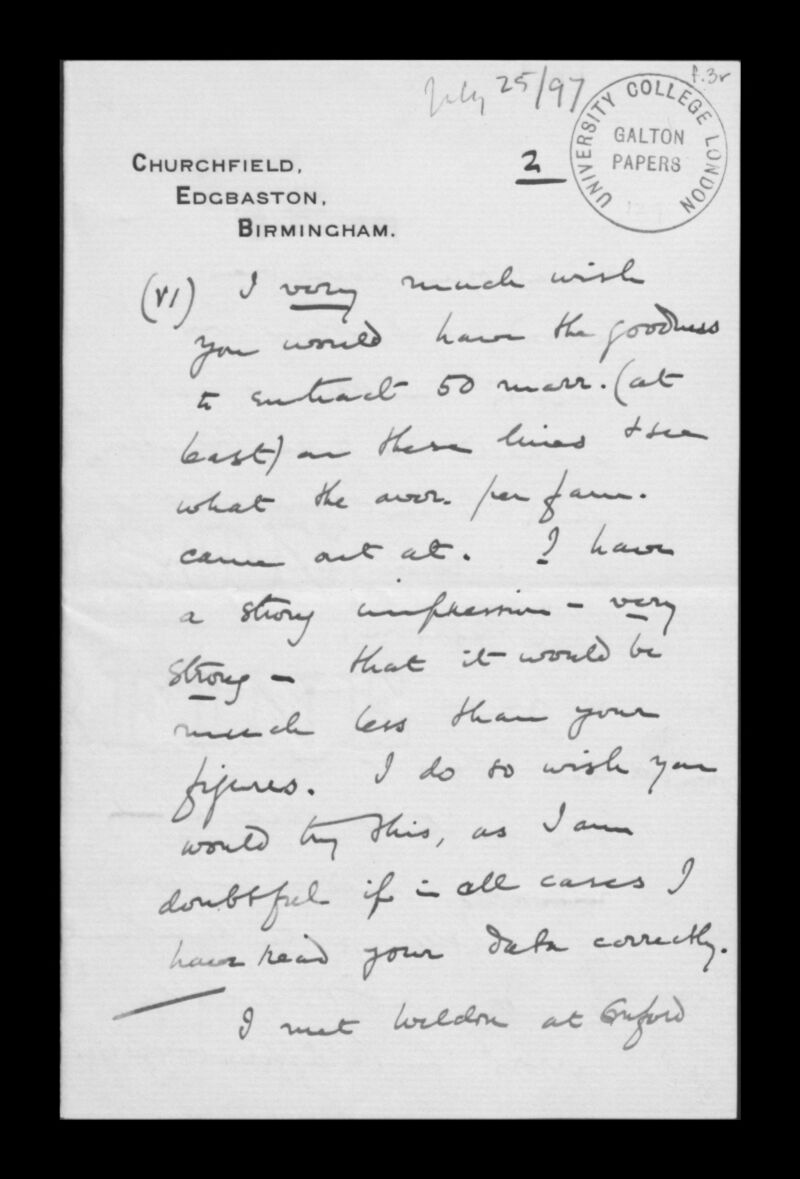 f.3r
July 25/97
UNIVERSITY COLLEGE LONDON
GALTON
PAPERS
2
CHURCHFIELD,
EDGBASTON,
BIRMINGHAM.
(VI) I very much wish
you would have the goodness
to extract 50 marr. (at
least) on these lines & see
what the aver. per fam.
came out at. I have
a strong impression - very
strong - that it would be
much less than your
figures. I do so wish you
would try this, as I am
doubtful if in all cases I
have read your data correctly.
I met Weldon at Oxford